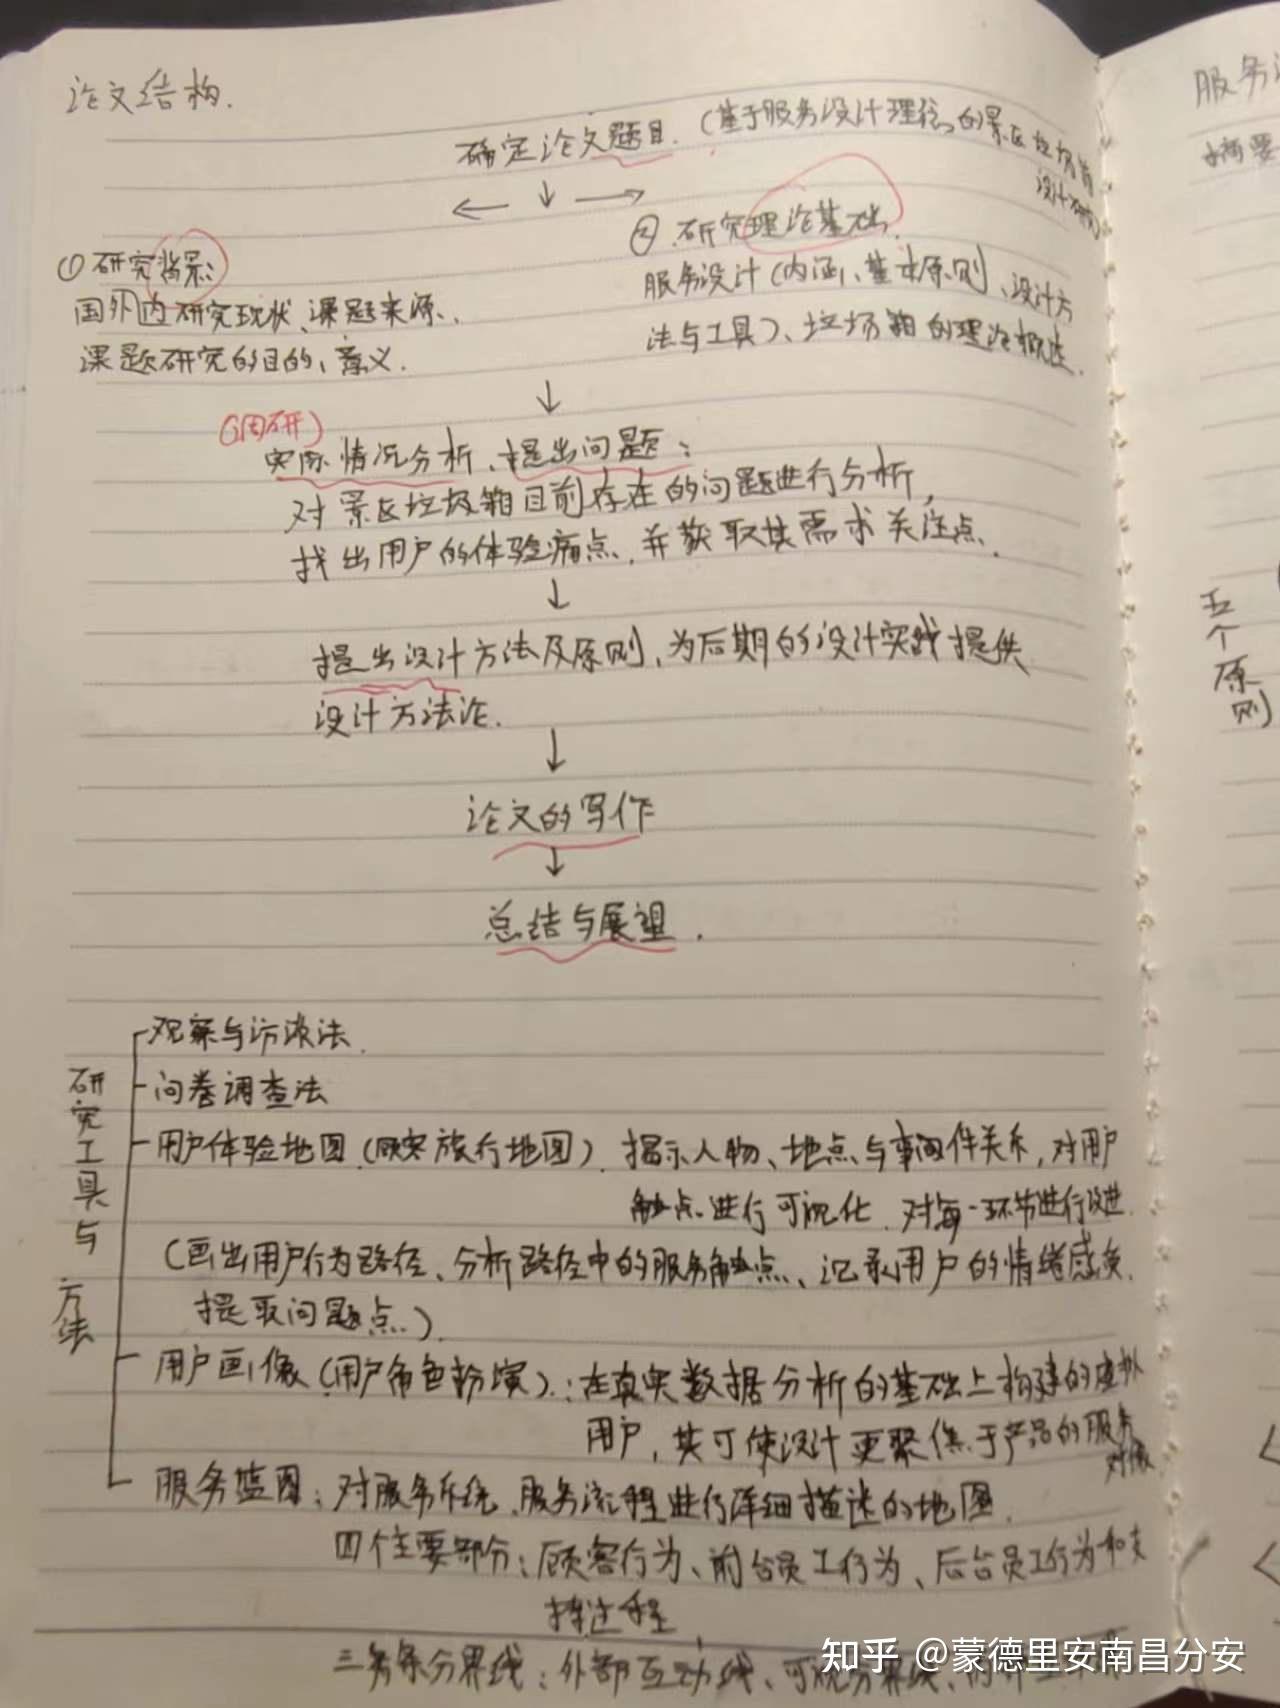 论文结构.
确定论文题目.(基于服务设计理念的景区垃圾箱
设计研究)
② 研究理论基础.
① 研究背景:
服务设计(内涵、基本原则、设计方
国外内研究现状、课题来源、
法与工具)、垃圾箱的理论概述.
课题研究的目的、意义.
(调研)
实际情况分析、提出问题:
对景区垃圾箱目前存在的问题进行分析,
找出用户的体验痛点,并获取其需求关注点.
提出设计方法及原则,为后期的设计实践提供
设计方法论.
论文的写作
总结与展望.
研究工具与方法
观察与访谈法.
问卷调查法
用户体验地图(顾客旅行地图).揭示人物、地点与事件关系,对用户
触点进行可视化.对每一环节进行改进.
(画出用户行为路径、分析路径中的服务触点、记录用户的情绪感受.
提取问题点.)
用户画像(用户角色扮演):在真实数据分析的基础上构建的虚拟
用户,其可使设计更聚焦于产品的服务
对像
服务蓝图:对服务系统、服务流程进行详细描述的地图.
四个主要部分:顾客行为、前台员工行为、后台员工行为和支
持过程
三条分界线:外部互动线、可视分界线、
服务
摘要
五个原则
知乎 @蒙德里安南昌分安